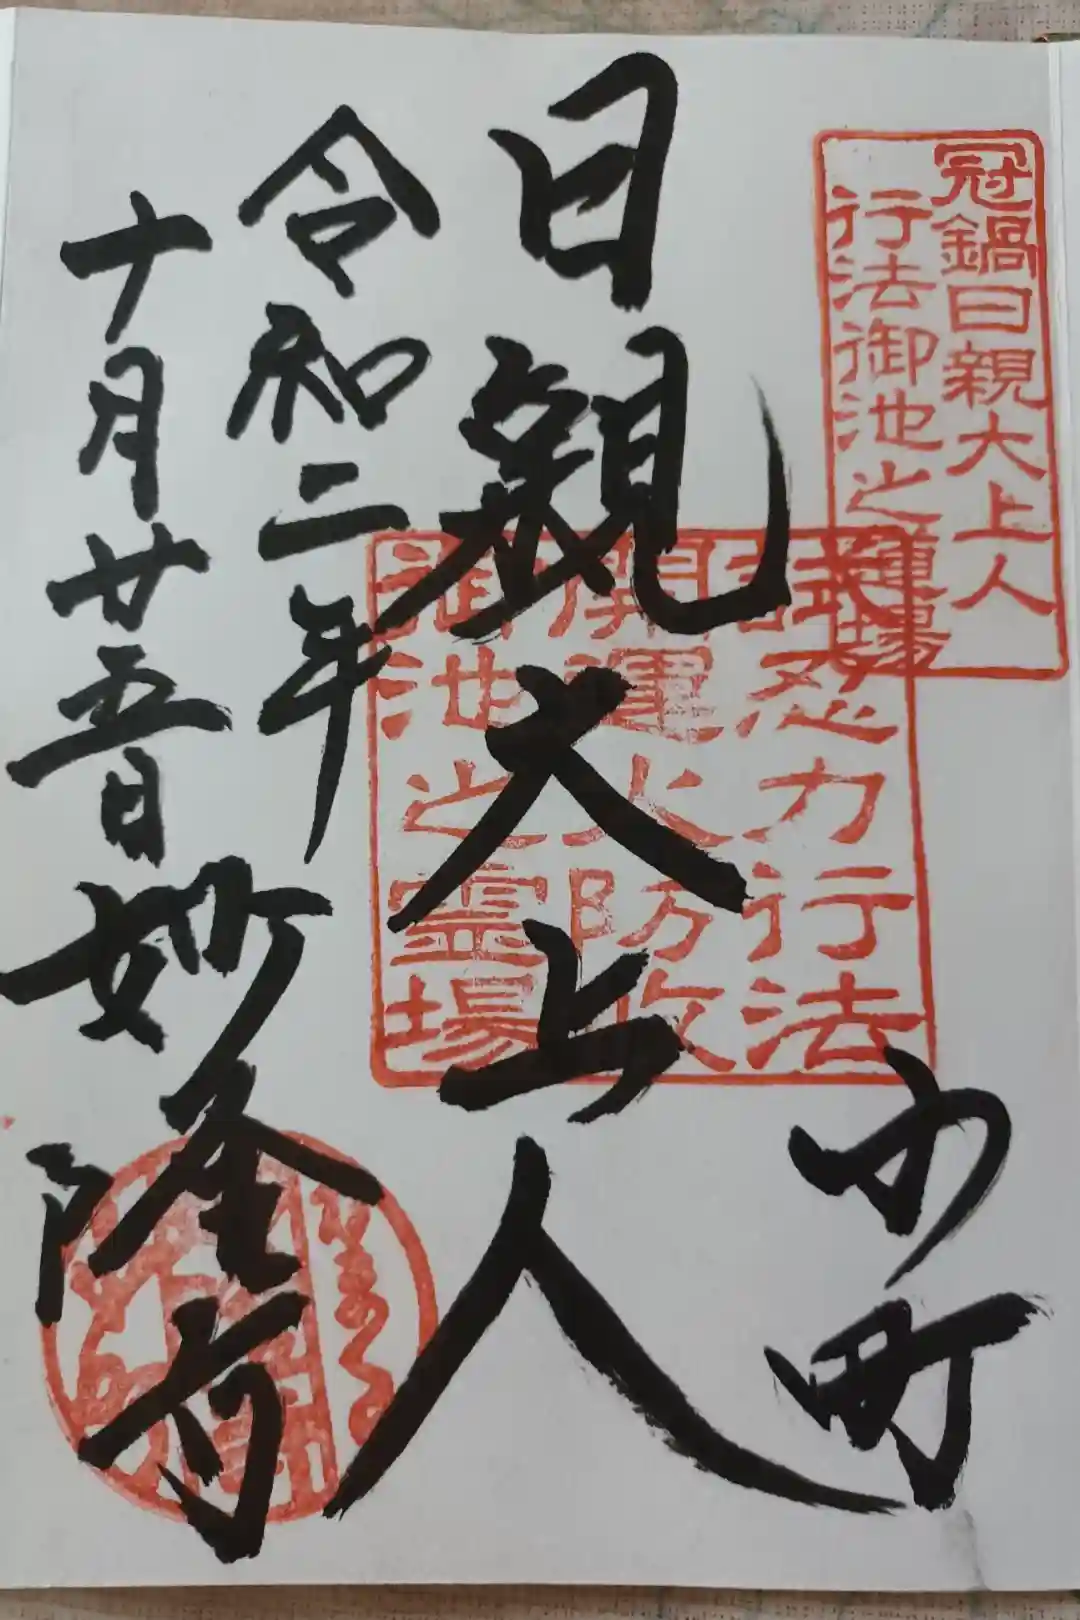 冠鍋日親大上人
行法御池之霊場
小町
日親大上人
試忍力行法
開運火防
御池之霊場
令和二年
十月廿五日
妙隆寺